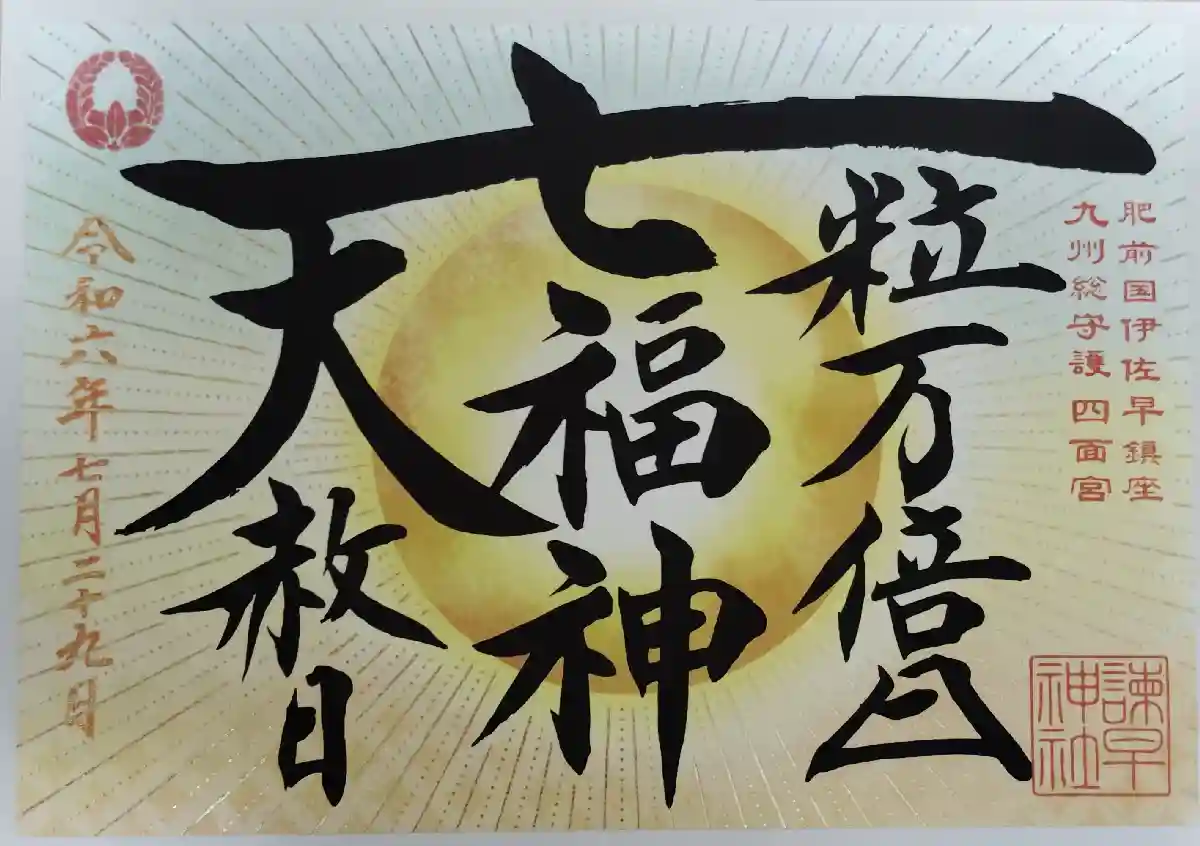 肥前国伊佐早鎮座
九州総守護 四面宮
一粒万倍日
七福神
天赦日
令和六年七月二十九日
諫早
神社